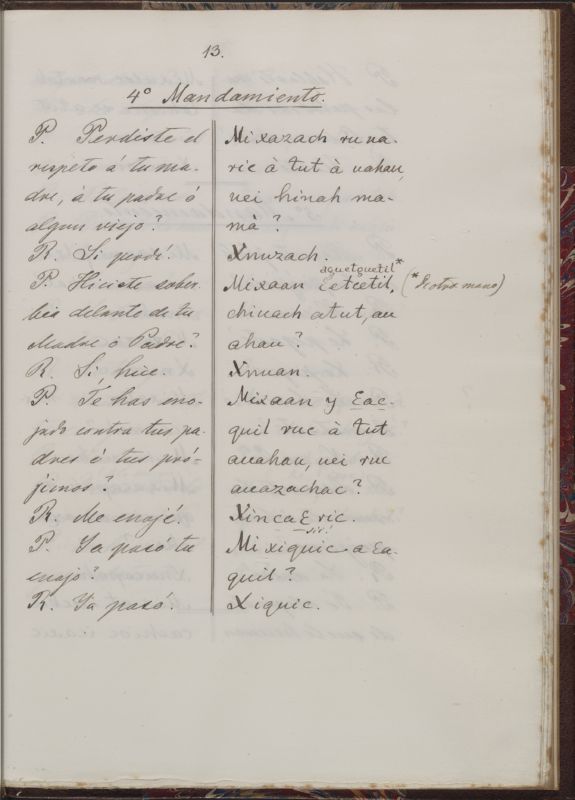 13.
4º Mandamiento.
P. Perdiste el
respeto á tu ma-
dre, á tu padre ó
algun viejo?
R. Si perdí
P. Hiciste sober
bia delante de tu
Madre ó Padre?
R. Si, hice.
P. Té has eno-
jado contra tus pa-
dres ó tus pró-
jimos?
R. Me enojé.
P. Ya pasó tu
enojo?
R. Ya pasó.
Mixazach ru na-
ric à tut à vahau,
vei hinah ma-
mà?
Xnuzach.
aguetguetil*
Mixaan Eetcetil, (*de otra mano)
chinach atut, au
ahau?
Xnuan.
Mixaan y Eac-
quil ruc à tut
auahau, vei ruc
auazachac?
XincaE ric.
Mi xiquic a Ea-
quil?
Xiquic.